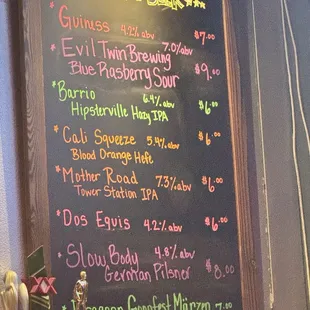 * Guiness 4.2% abv $7.00
* Evil Twin Brewing 7.0% abv
Blue Raspberry Sour $9.00
* Barrio 6.4% abv
Hipsterville Hazy IPA $6.00
* Cali Squeeze 5.4% abv $6.00
Blood Orange Hefe
* Mother Road 7.3% abv $6.00
Tower Station IPA
* Dos Equis 4.2% abv $6.00
* Slow Body 4.8% abv
German Pilsner $8.00
* Dragoon Goonfest Märzen 7.00